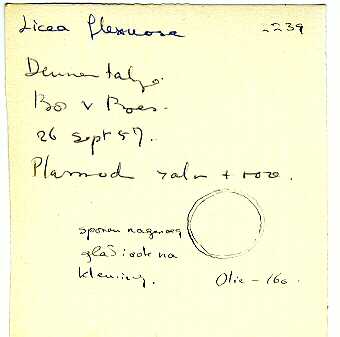 Licea flexuosa 2239
Dennentakje.
Bo v Boes.
26 Sept 57.
Plasmod zalm + roze.
sporen nagenoeg
glad ook na
kleuring. Olie - 160.